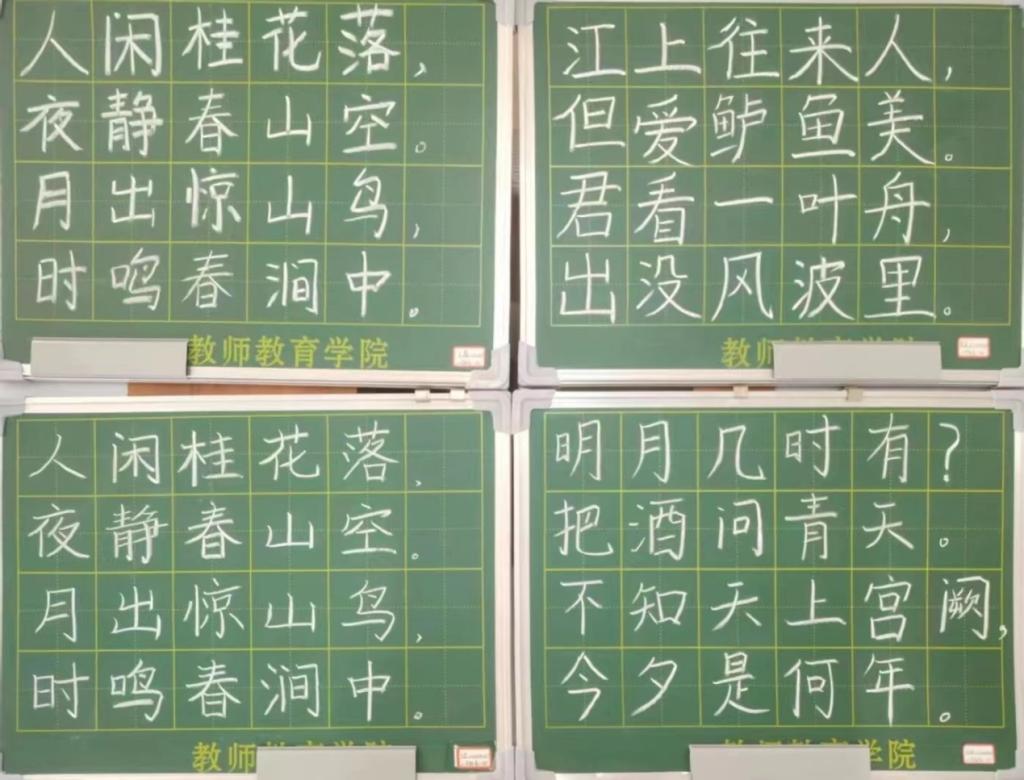 人闲桂花落，
夜静春山空。
月出惊山鸟，
时鸣春涧中。
教师教育学院
江上往来人，
但爱鲈鱼美。
君看一叶舟，
出没风波里。
教师
人闲桂花落，
夜静春山空。
月出惊山鸟，
时鸣春涧中。
教师教育学院
明月几时有？
把酒问青天。
不知天上宫阙，
今夕是何年。
教师教育学院